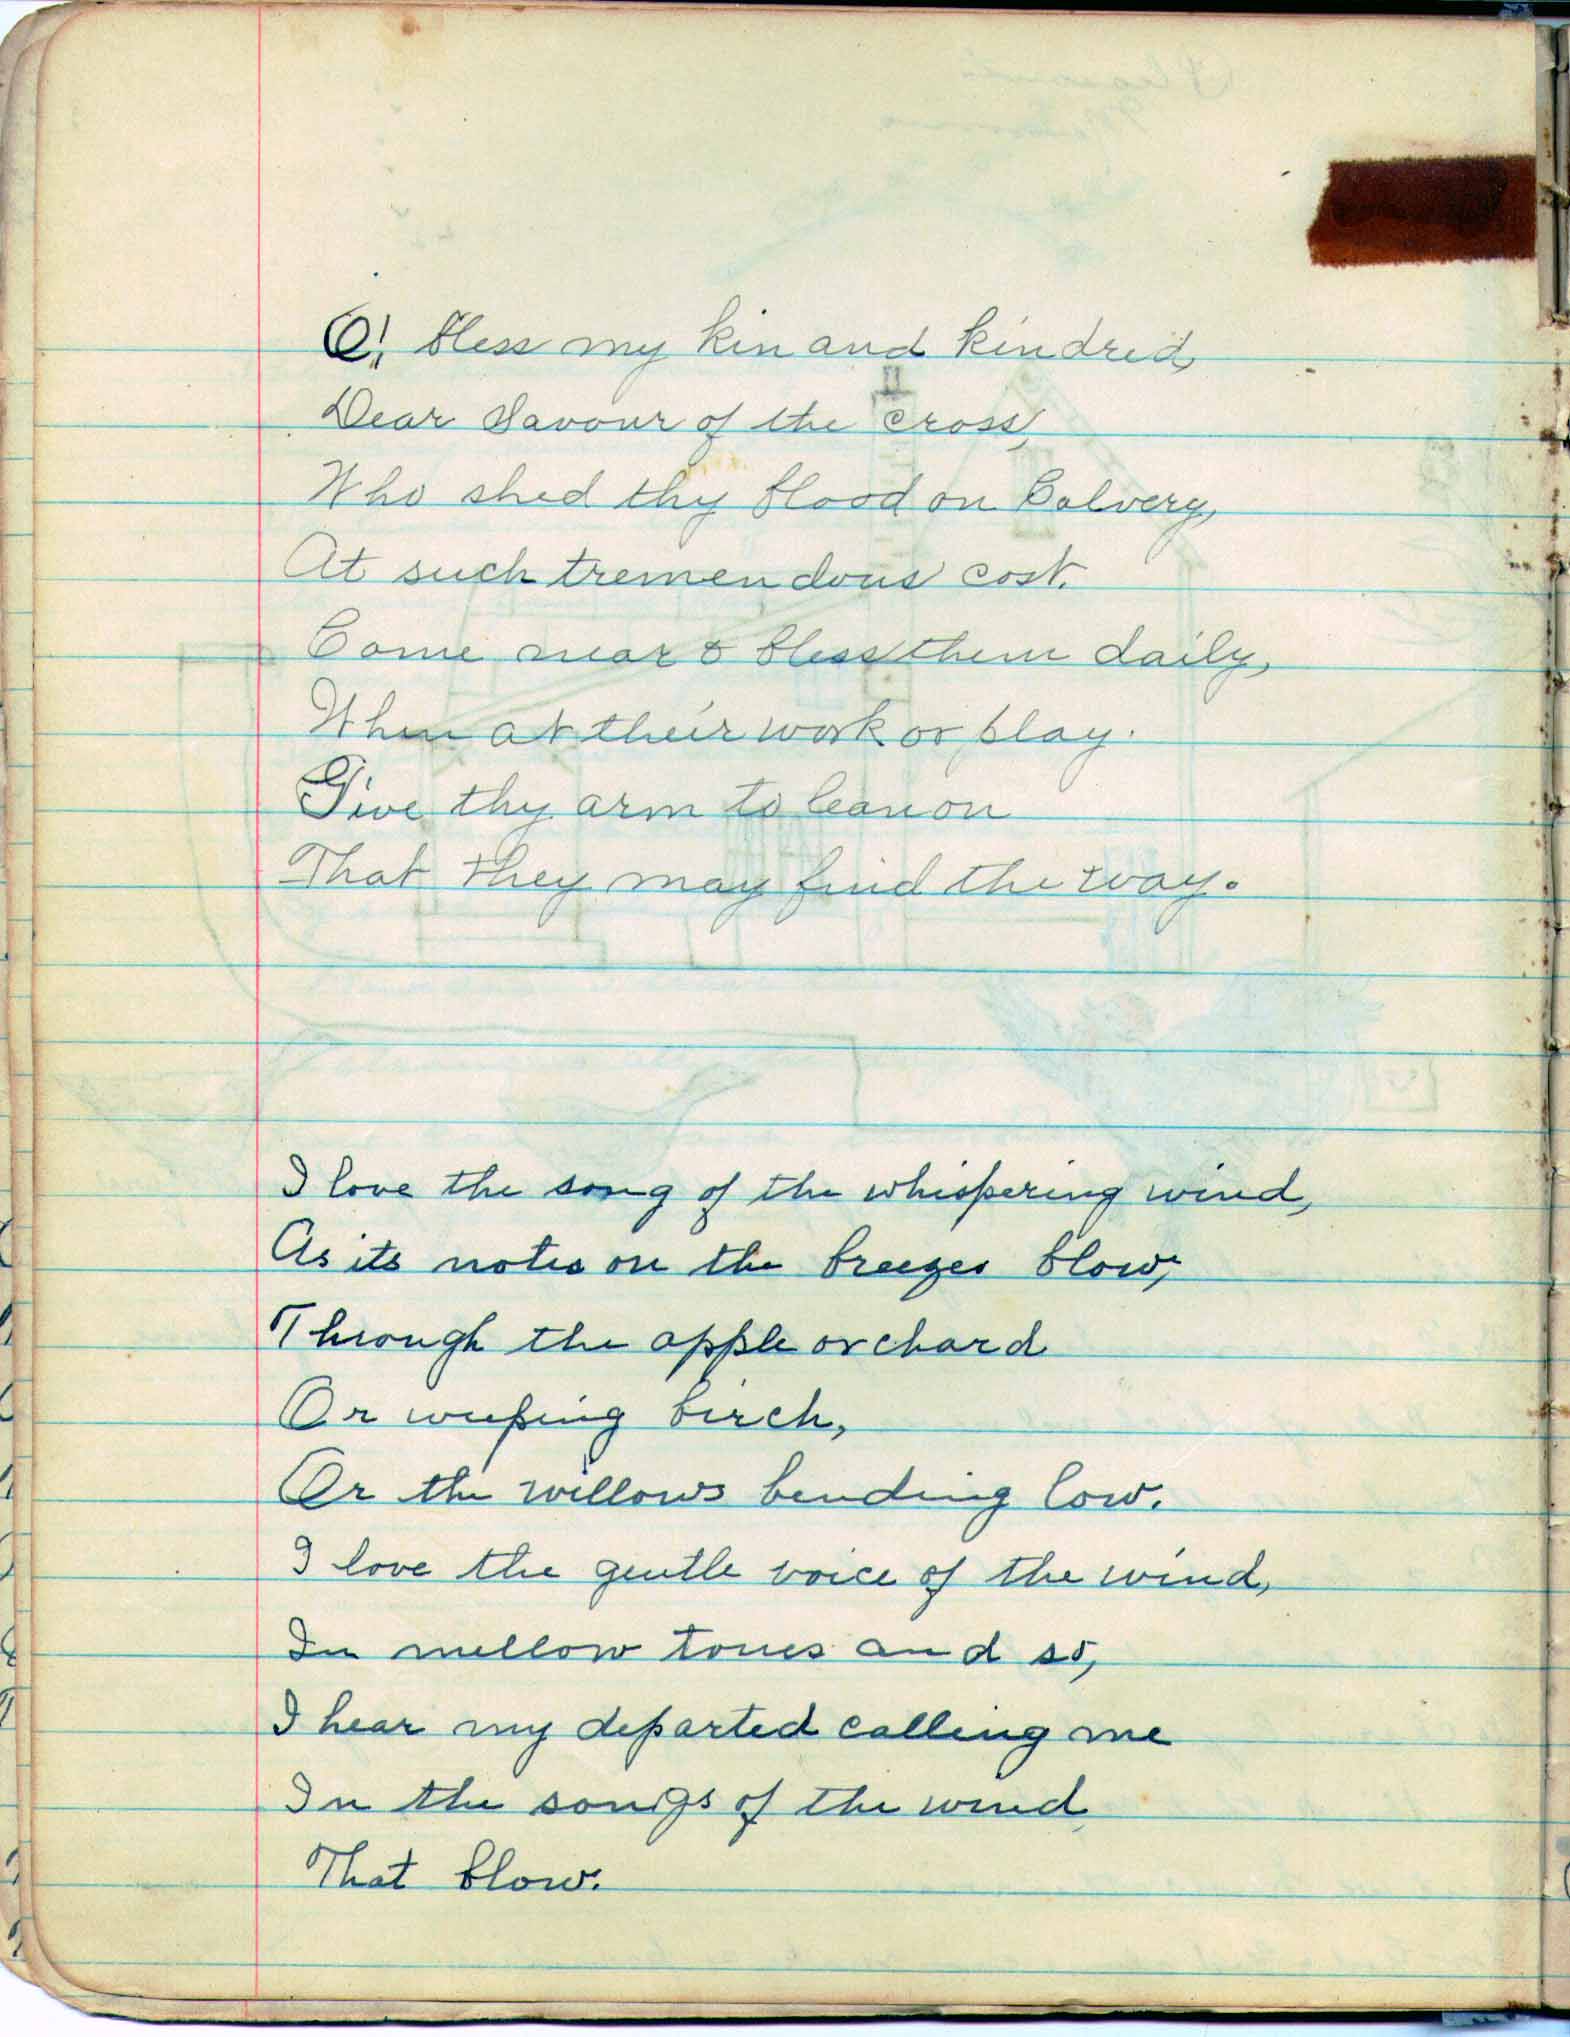 O! bless my kin and kindred,
Dear Savour of the cross,
Who shed thy blood on Calvery,
At such tremendous cost.
Come near & bless them daily,
When at their work or play.
Give thy arm to lean on
That they may find the way.
I love the song of the whispering wind,
As its notes on the breezes blow,
Through the apple orchard
Or weeping birch,
Or the willows bending low.
I love the gentle voice of the wind,
In mellow tones and so,
I hear my departed calling me
In the songs of the wind
That blow.